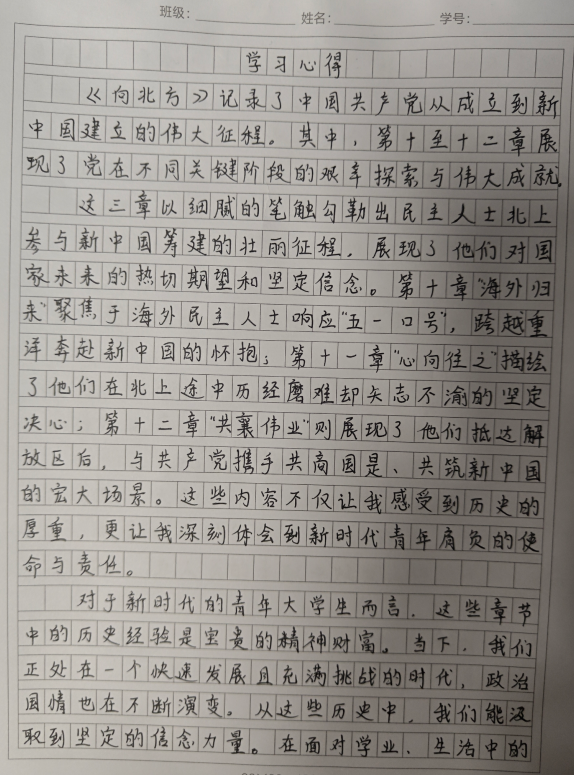 班级： 姓名： 学号：
学习心得
《向北方》记录了中国共产党从成立到新
中国建立的伟大征程。其中，第十至十二章展
现了党在不同关键阶段的艰辛探索与伟大成就。
这三章以细腻的笔触勾勒出民主人士北上
参与新中国筹建的壮丽征程，展现了他们对国
家未来的热切期望和坚定信念。第十章"海外归
来"聚焦于海外民主人士响应"五一口号"，跨越重
洋奔赴新中国的怀抱；第十一章"心向往之"描绘
了他们在北上途中历经磨难却矢志不渝的坚定
决心；第十二章"共襄伟业"则展现了他们抵达解
放区后，与共产党携手共商国是、共筑新中国
的宏大场景。这些内容不仅让我感受到历史的
厚重，更让我深刻体会到新时代青年肩负的使
命与责任。
对于新时代的青年大学生而言，这些章节
中的历史经验是宝贵的精神财富。当下，我们
正处在一个快速发展且充满挑战的时代，政治
国情也在不断演变。从这些历史中，我们能汲
取到坚定的信念力量。在面对学业、生活中的